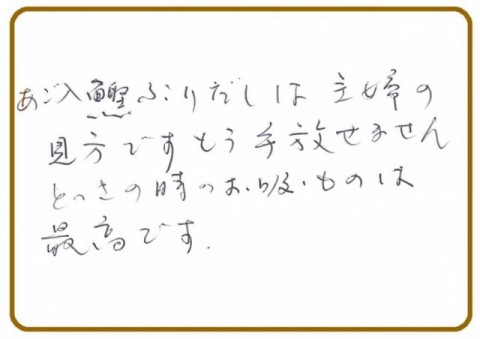 あご入鰹ふりだしは主婦の
見方ですもう手放せません
とっさの時のお吸いものは
最高です.